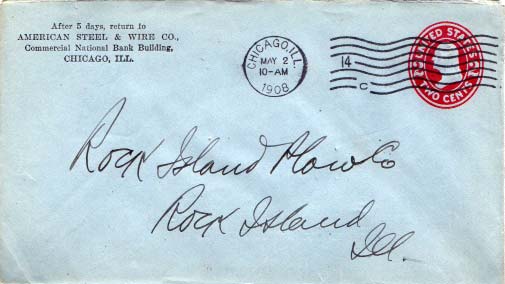 After 5 days, return to
AMERICAN STEEL & WIRE CO.,
Commercial National Bank Building,
CHICAGO, ILL.
CHICAGO, ILL.
MAY 2
10-AM
1908
14
C
UNITED STATES
TWO CENTS
Rock Island Plow Co
Rock Island
Ill.